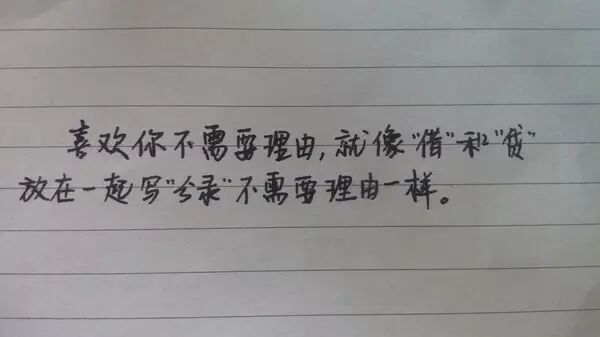 喜欢你不需要理由,就像"借"和"贷"
放在一起写"分录"不需要理由一样。